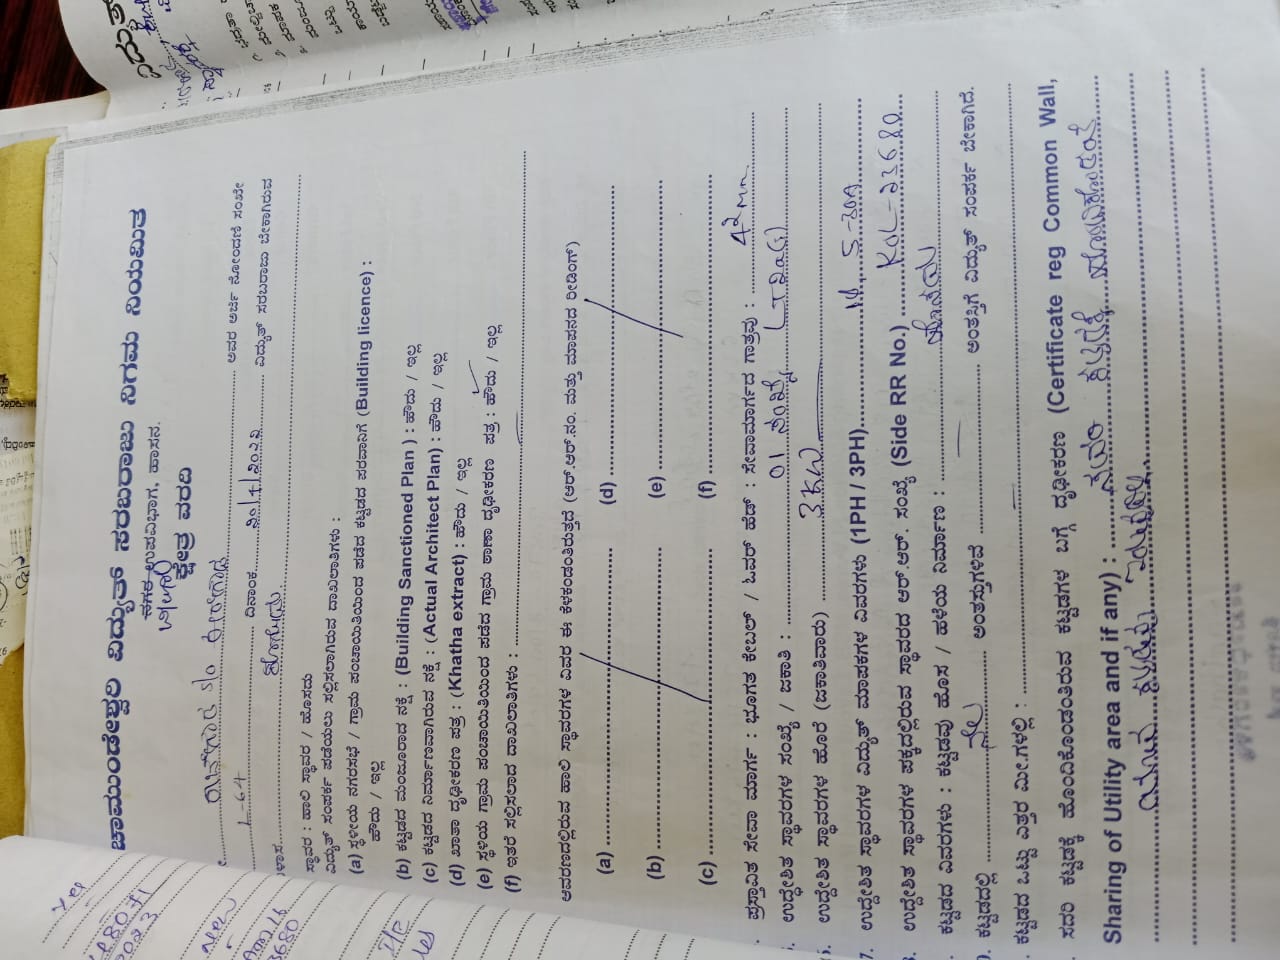 ಚಾಮುಂಡೇಶ್ವರಿ ವಿದ್ಯುತ್ ಸರಬರಾಜು ನಿಗಮ ನಿಯಮಿತ
ಉಪವಿಭಾಗ, ಹಾಸನ.
ಕ್ಷೇತ್ರ ವರದಿ
s/o ಅವರ ಅರ್ಜಿ ನೋಂದಣಿ ಸಂಖ್ಯೇ
L-64 ದಿನಾಂಕ ವಿದ್ಯುತ್ ಸರಬರಾಜು ಬೇಕಾಗಿರುವ
ಸ್ಥಾವರ : ಹಾಲಿ ಸ್ಥಾವರ / ಹೊಸದು
ವಿದ್ಯುತ್ ಸಂಪರ್ಕ ಪಡೆಯಲು ಸಲ್ಲಿಸಲಾಗಿರುವ ದಾಖಲಾತಿಗಳು :
(a) ಸ್ಥಳೀಯ ನಗರಸಭೆ / ಗ್ರಾಮ ಪಂಚಾಯಿತಿಯಿಂದ ಪಡೆದ ಕಟ್ಟಡದ ಪರವಾನಿಗೆ (Building licence) :
ಹೌದು / ಇಲ್ಲ
(b) ಕಟ್ಟಡದ ಮಂಜೂರಾದ ನಕ್ಷೆ : (Building Sanctioned Plan) : ಹೌದು / ಇಲ್ಲ
(c) ಕಟ್ಟಡದ ನಿರ್ಮಾಣವಾಗಿರುವ ನಕ್ಷೆ : (Actual Architect Plan) : ಹೌದು / ಇಲ್ಲ
(d) ಖಾತಾ ದೃಢೀಕರಣ ಪತ್ರ : (Khatha extract) : ಹೌದು / ಇಲ್ಲ
(e) ಸ್ಥಳೀಯ ಗ್ರಾಮ ಪಂಚಾಯಿತಿಯಿಂದ ಪಡೆದ ಗ್ರಾಮ ಠಾಣಾ ದೃಢೀಕರಣ ಪತ್ರ : ಹೌದು / ಇಲ್ಲ
(f) ಇತರೆ ಸಲ್ಲಿಸಲಾದ ದಾಖಲಾತಿಗಳು :
ಆವರಣದಲ್ಲಿರುವ ಹಾಲಿ ಸ್ಥಾವರಗಳ ವಿವರ ಈ ಕೆಳಕಂಡಂತಿರುತ್ತದೆ (ಆರ್.ಆರ್.ನಂ. ಮತ್ತು ಮಾಪನದ ರೀಡಿಂಗ್)
(a) (d)
(b) (e)
(c) (f)
ಪ್ರಸ್ತಾವಿತ ಸೇವಾ ಮಾರ್ಗ : ಭೂಗತ ಕೇಬಲ್ / ಓವರ್ ಹೆಡ್ : ಸೇವಾಮಾರ್ಗದ ಗಾತ್ರವು :
ಉದ್ದೇಶಿತ ಸ್ಥಾವರಗಳ ಸಂಖ್ಯೆ / ಜಕಾತಿ : 01 ಸಂಖ್ಯೆ LT2a(i)
ಉದ್ದೇಶಿತ ಸ್ಥಾವರಗಳ ಹೊರೆ (ಜಕಾತಿವಾರು) 3KW
7. ಉದ್ದೇಶಿತ ಸ್ಥಾವರಗಳ ವಿದ್ಯುತ್ ಮಾಪಕಗಳ ವಿವರಗಳು (1PH / 3PH) 1Ø, 5-30A
ಉದ್ದೇಶಿತ ಸ್ಥಾವರಗಳ ಪಕ್ಕದಲ್ಲಿರುವ ಸ್ಥಾವರದ ಆರ್.ಆರ್. ಸಂಖ್ಯೆ (Side RR No.) KOL-23680
ಕಟ್ಟಡದ ವಿವರಗಳು : ಕಟ್ಟಡವು ಹೊಸ / ಹಳೆಯ ನಿರ್ಮಾಣ : ಹೊಸದು
ಕಟ್ಟಡದಲ್ಲಿ ನೆಲ ಅಂತಸ್ತುಗಳಿವೆ ಅಂತಸ್ತಿಗೆ ವಿದ್ಯುತ್ ಸಂಪರ್ಕ ಬೇಕಾಗಿದೆ.
ಕಟ್ಟಡದ ಒಟ್ಟು ಎತ್ತರ ಮೀ.ಗಳಲ್ಲಿ :
ಸದರಿ ಕಟ್ಟಡಕ್ಕೆ ಹೊಂದಿಕೊಂಡಂತಿರುವ ಕಟ್ಟಡಗಳ ಬಗ್ಗೆ ದೃಢೀಕರಣ (Certificate reg Common Wall,
Sharing of Utility area and if any) : ಸದರಿ ಕಟ್ಟಡಕ್ಕೆ ಹೊಂದಿಕೊಂಡಂತೆ
ಯಾವುದೇ ಕಟ್ಟಡವು ಇರುವುದಿಲ್ಲ.